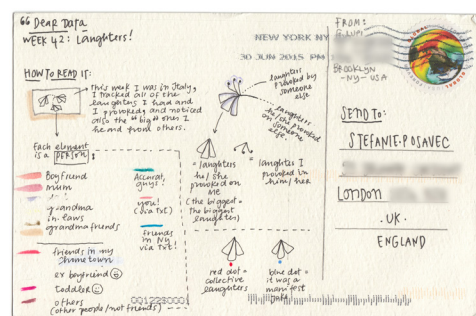 Dear Data
WEEK 42: Laughters!
HOW TO READ IT:
this week I was in Italy,
I tracked all of the
laughters I had and
I provoked, and noticed
also the "big" ones I
heard from others.
Each element
is a person:
Boyfriend
mum
grandma
in-laws
grandma friends
friends in my
hometown
ex boyfriend
toddler
others
(other people/not friends)
Accurat,
guys!
you!
(via txt)
friends
in NY
via txt!
laughters
provoked by
someone
else
laughters
he/she provoked
on someone
else.
= laughters
he/she
provoked on
me
(the biggest =
the biggest
laughter)
= laughters I
provoked in
him/her
red dot =
collective
laughters
blue dot =
it was a
manifest
joke
NEW YORK NY
30 JUN 2015 PM
FROM:
BROOKLYN
-NY- USA
GLOBAL
SEND TO:
STEFANIE POSAVEC
LONDON
.UK.
ENGLAND